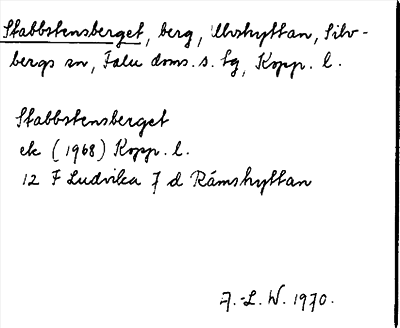 Stabbstensberget, berg, Ulvshyttan, Silv-
bergs sn, Falu doms. s. tg, Kopp. l.
Stabbstensberget
ek (1968) Kopp. l.
12 F Ludvika 7 d Rämshyttan
J.-L. W. 1970.